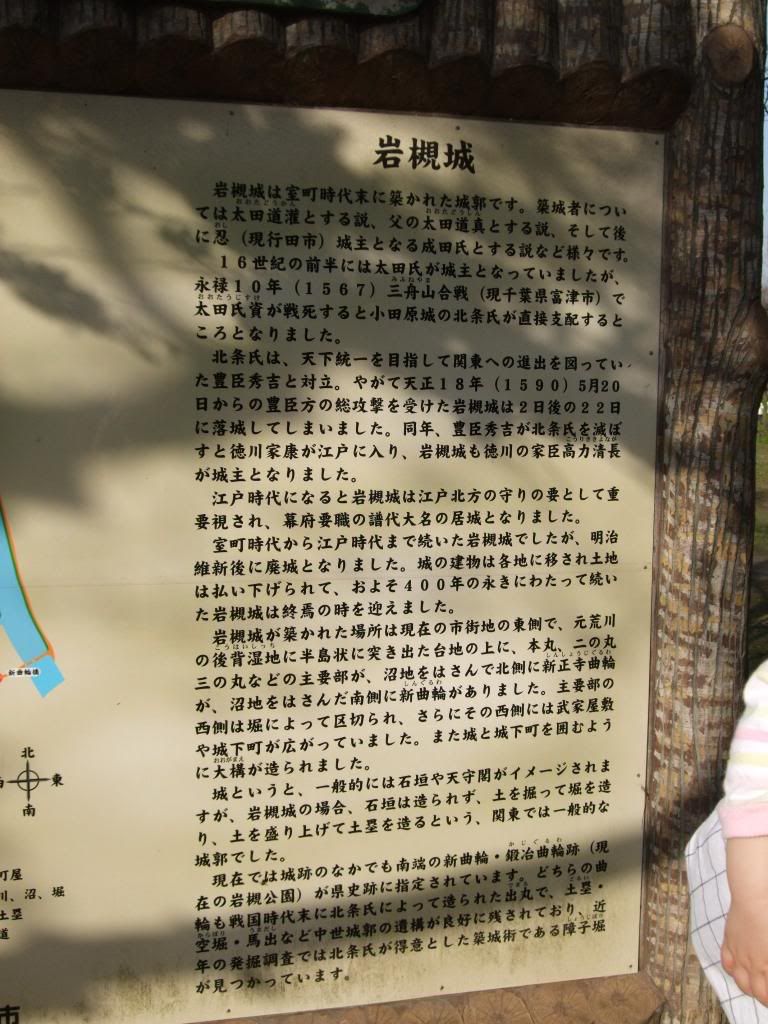 岩槻城
岩槻城は室町時代末に築かれた城郭です。築城者につい
ては太田道灌とする説、父の太田道真とする説、そして後
に忍(現行田市)城主となる成田氏とする説など様々です。
16世紀の前半には太田氏が城主となっていましたが、
永禄10年(1567)三舟山合戦(現千葉県富津市)で
太田氏資が戦死すると小田原城の北条氏が直接支配すると
ころとなりました。
北条氏は、天下統一を目指して関東への進出を図ってい
た豊臣秀吉と対立。やがて天正18年(1590)5月20
日からの豊臣方の総攻撃を受けた岩槻城は2日後の22日
に落城してしまいました。同年、豊臣秀吉が北条氏を滅ぼ
すと徳川家康が江戸に入り、岩槻城も徳川の家臣高力清長
が城主となりました。
江戸時代になると岩槻城は江戸北方の守りの要として重
要視され、幕府要職の譜代大名の居城となりました。
室町時代から江戸時代まで続いた岩槻城でしたが、明治
維新後に廃城となりました。城の建物は各地に移され土地
は払い下げられて、およそ400年の永きにわたって続い
た岩槻城は終焉の時を迎えました。
岩槻城が築かれた場所は現在の市街地の東側で、元荒川
の後背湿地に半島状に突き出た台地の上に、本丸、二の丸
三の丸などの主要部が、沼地をはさんで北側に新正寺曲輪
が、沼地をはさんだ南側に新曲輪がありました。主要部の
西側は堀によって区切られ、さらにその西側には武家屋敷
や城下町が広がっていました。また城と城下町を囲むよう
に大構が造られました。
城というと、一般的には石垣や天守閣がイメージされま
すが、岩槻城の場合、石垣は造られず、土を掘って堀を造
り、土を盛り上げて土塁を造るという、関東では一般的な
城郭でした。
現在では城跡のなかでも南端の新曲輪・鍛冶曲輪跡(現
在の岩槻公園)が県史跡に指定されています。どちらの曲
輪も戦国時代末に北条氏によって造られた出丸で、土塁・
空堀・馬出など中世城郭の遺構が良好に残されており、近
年の発掘調査では北条氏が得意とした築城術である障子堀
が見つかっています。
新曲輪橋
北
東
南
町屋
川、沼、堀
土塁
道
市